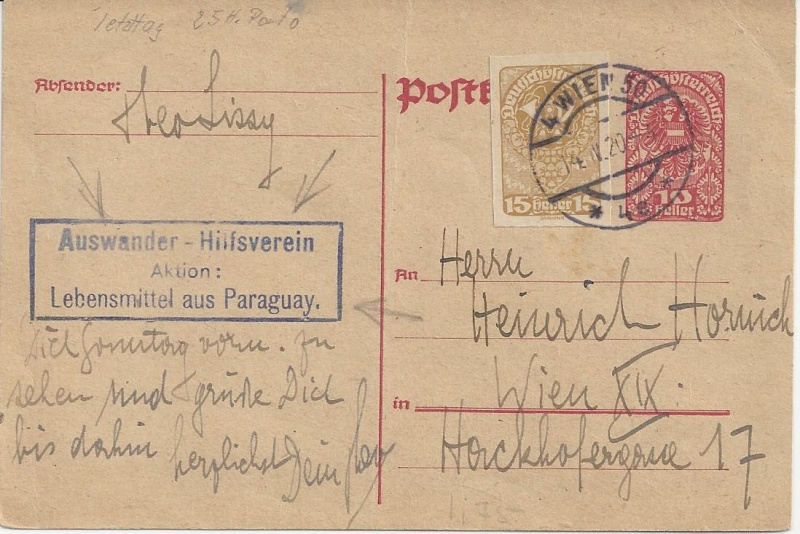 25 H. Porto
Absender:
Postk
Deutschösterreich
15 Heller 15
4 WIEN 50
20
* 4e *
Deutschösterreich
10
Heller
Auswander - Hilfsverein
Aktion:
Lebensmittel aus Paraguay.
An Herrn
Heinrich Hornich
in Wien XIX.
Hackhofergasse 17
Dich Sonntag vorm. zu
sehen und grüße Dich
bis dahin herzlichst Dein